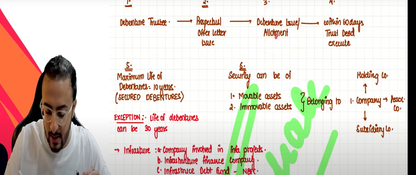 1.
2.
3.
4.
Debenture Trustee → Prospectus/ Offer letter Issue → Debenture Issue/ Allotment → within 60 days Trust Deed execute
5.
Maximum life of
Debentures = 10 years.
(SECURED DEBENTURES)
EXCEPTION:- life of debentures
can be 30 years
→ Infrasture : a. Company involved in Infra projects.
b. Infrastructure finance Company.
c. Infrastruct Debt fund - NBFC
6.
Security can be of
1. Movable assets
2. Immovable assets
} Belonging to
Holding Co.
↑
Company → Assoc. Co.
↓
Subsidiary Co.